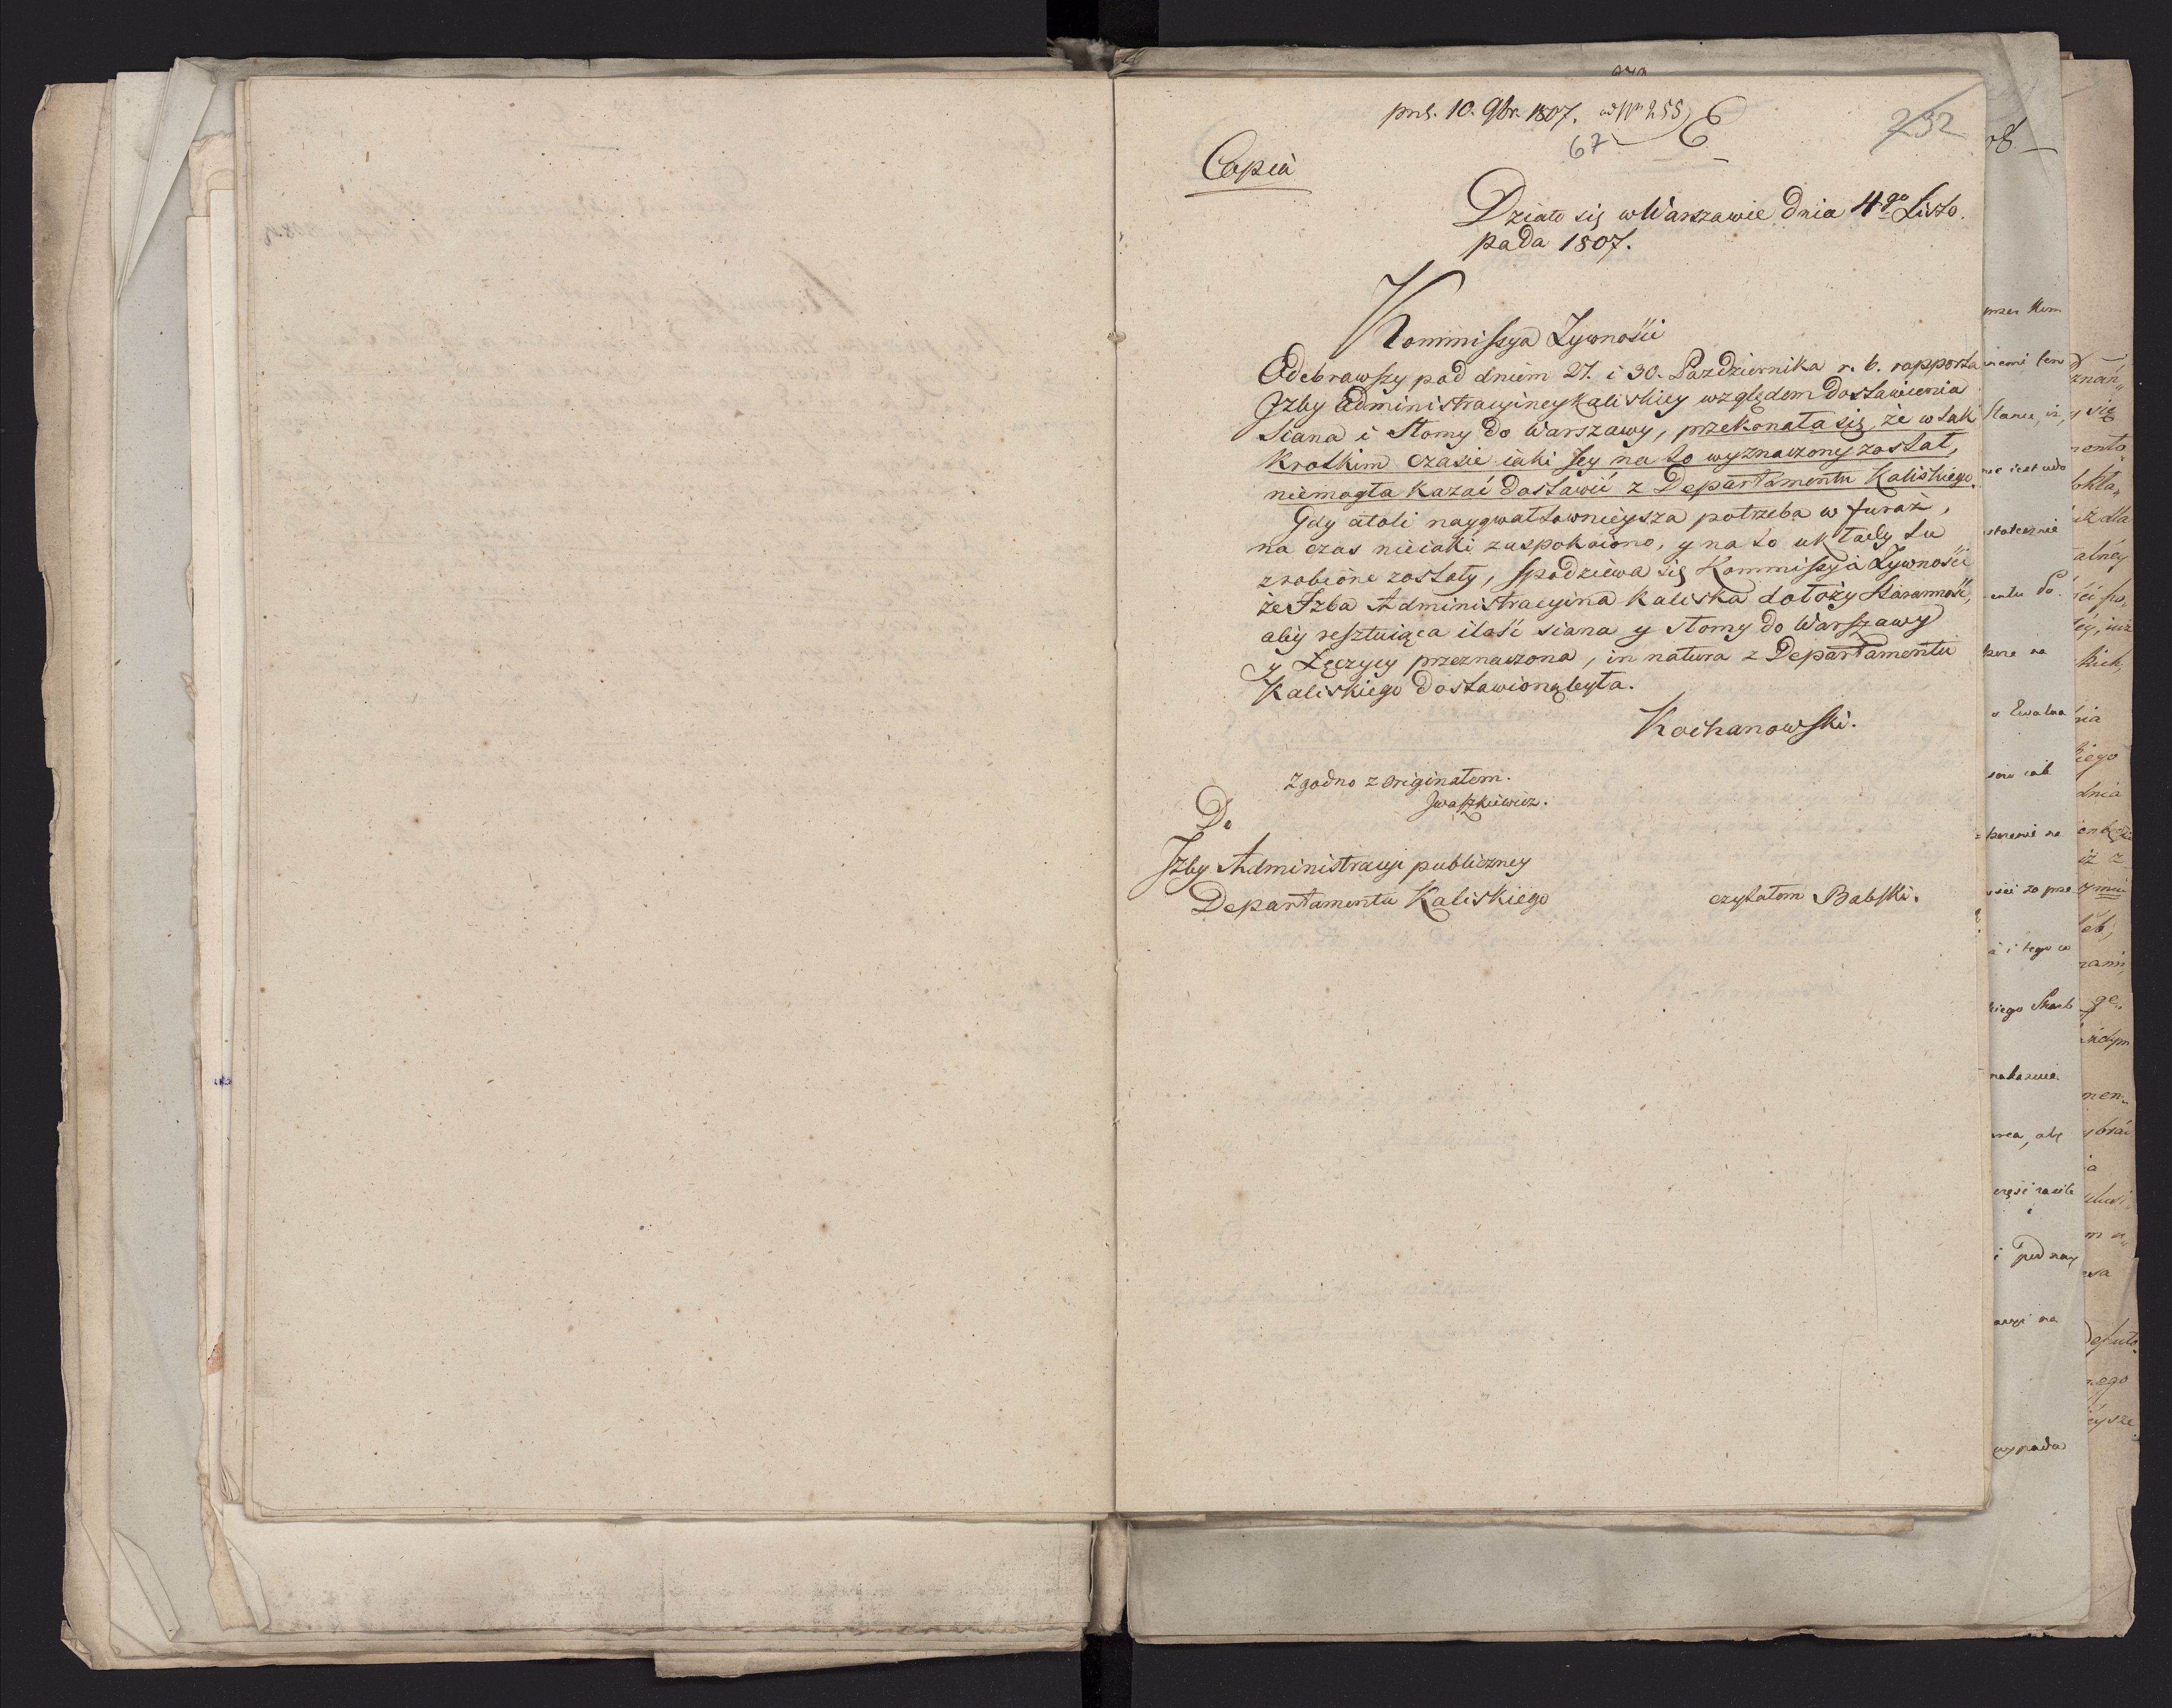 prs. 10. 9br. 1807. ad Nr 255 E
67
232
Copia
Działo się w Warszawie Dnia 4go Listo.
pada 1807.
Kommissya Zywnośći
Odebrawszy pod dniem 27. i 30. Pazdziernika r. b. rapporta
Jzby Administracyiney Kaliskiey względem Dostawienia
Siana i Słomy do Warszawy, przekonała się, że w tak
krotkim czasie iaki Jey na to wyznaczony został,
niemogła kazać dostawić z Departamentu Kaliskiego.
Gdy atoli naygwałtownieysza potrzeba w furaż,
na czas nieiaki zaspokoiono, y na to układy tu
zrobione zostały, spodziewa się Kommissya Zywnośći
że Izba Administracyina Kaliska dołoży Staranność,
aby resztuiąca ilość siana y słomy do Warszawy
y Łęczycy przeznaczona, in natura z Departamentu
Kaliskiego dostawioną była.
Kochanowski.
Zgodno z originałem.
Jwaszkiewicz.
Do
Jzby Administracyi publiczney
Departamentu Kaliskiego
czytałem Babski.